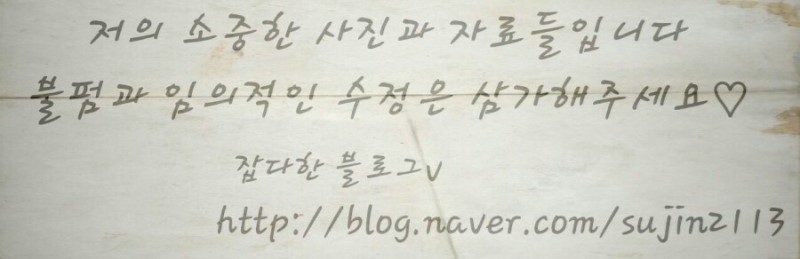 저의 소중한 사진과 자료들입니다
불펌과 임의적인 수정은 삼가해주세요♡
잡다한 블로그v
http://blog.naver.com/sujin2113